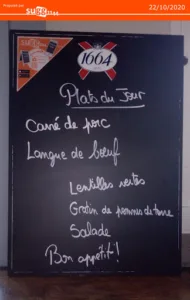 Proposé par
22/10/2020
1664
Plats du Jour
Carré de porc
Langue de bœuf
Lentilles vertes
Gratin de pommes de terre
Salade
Bon appétit !